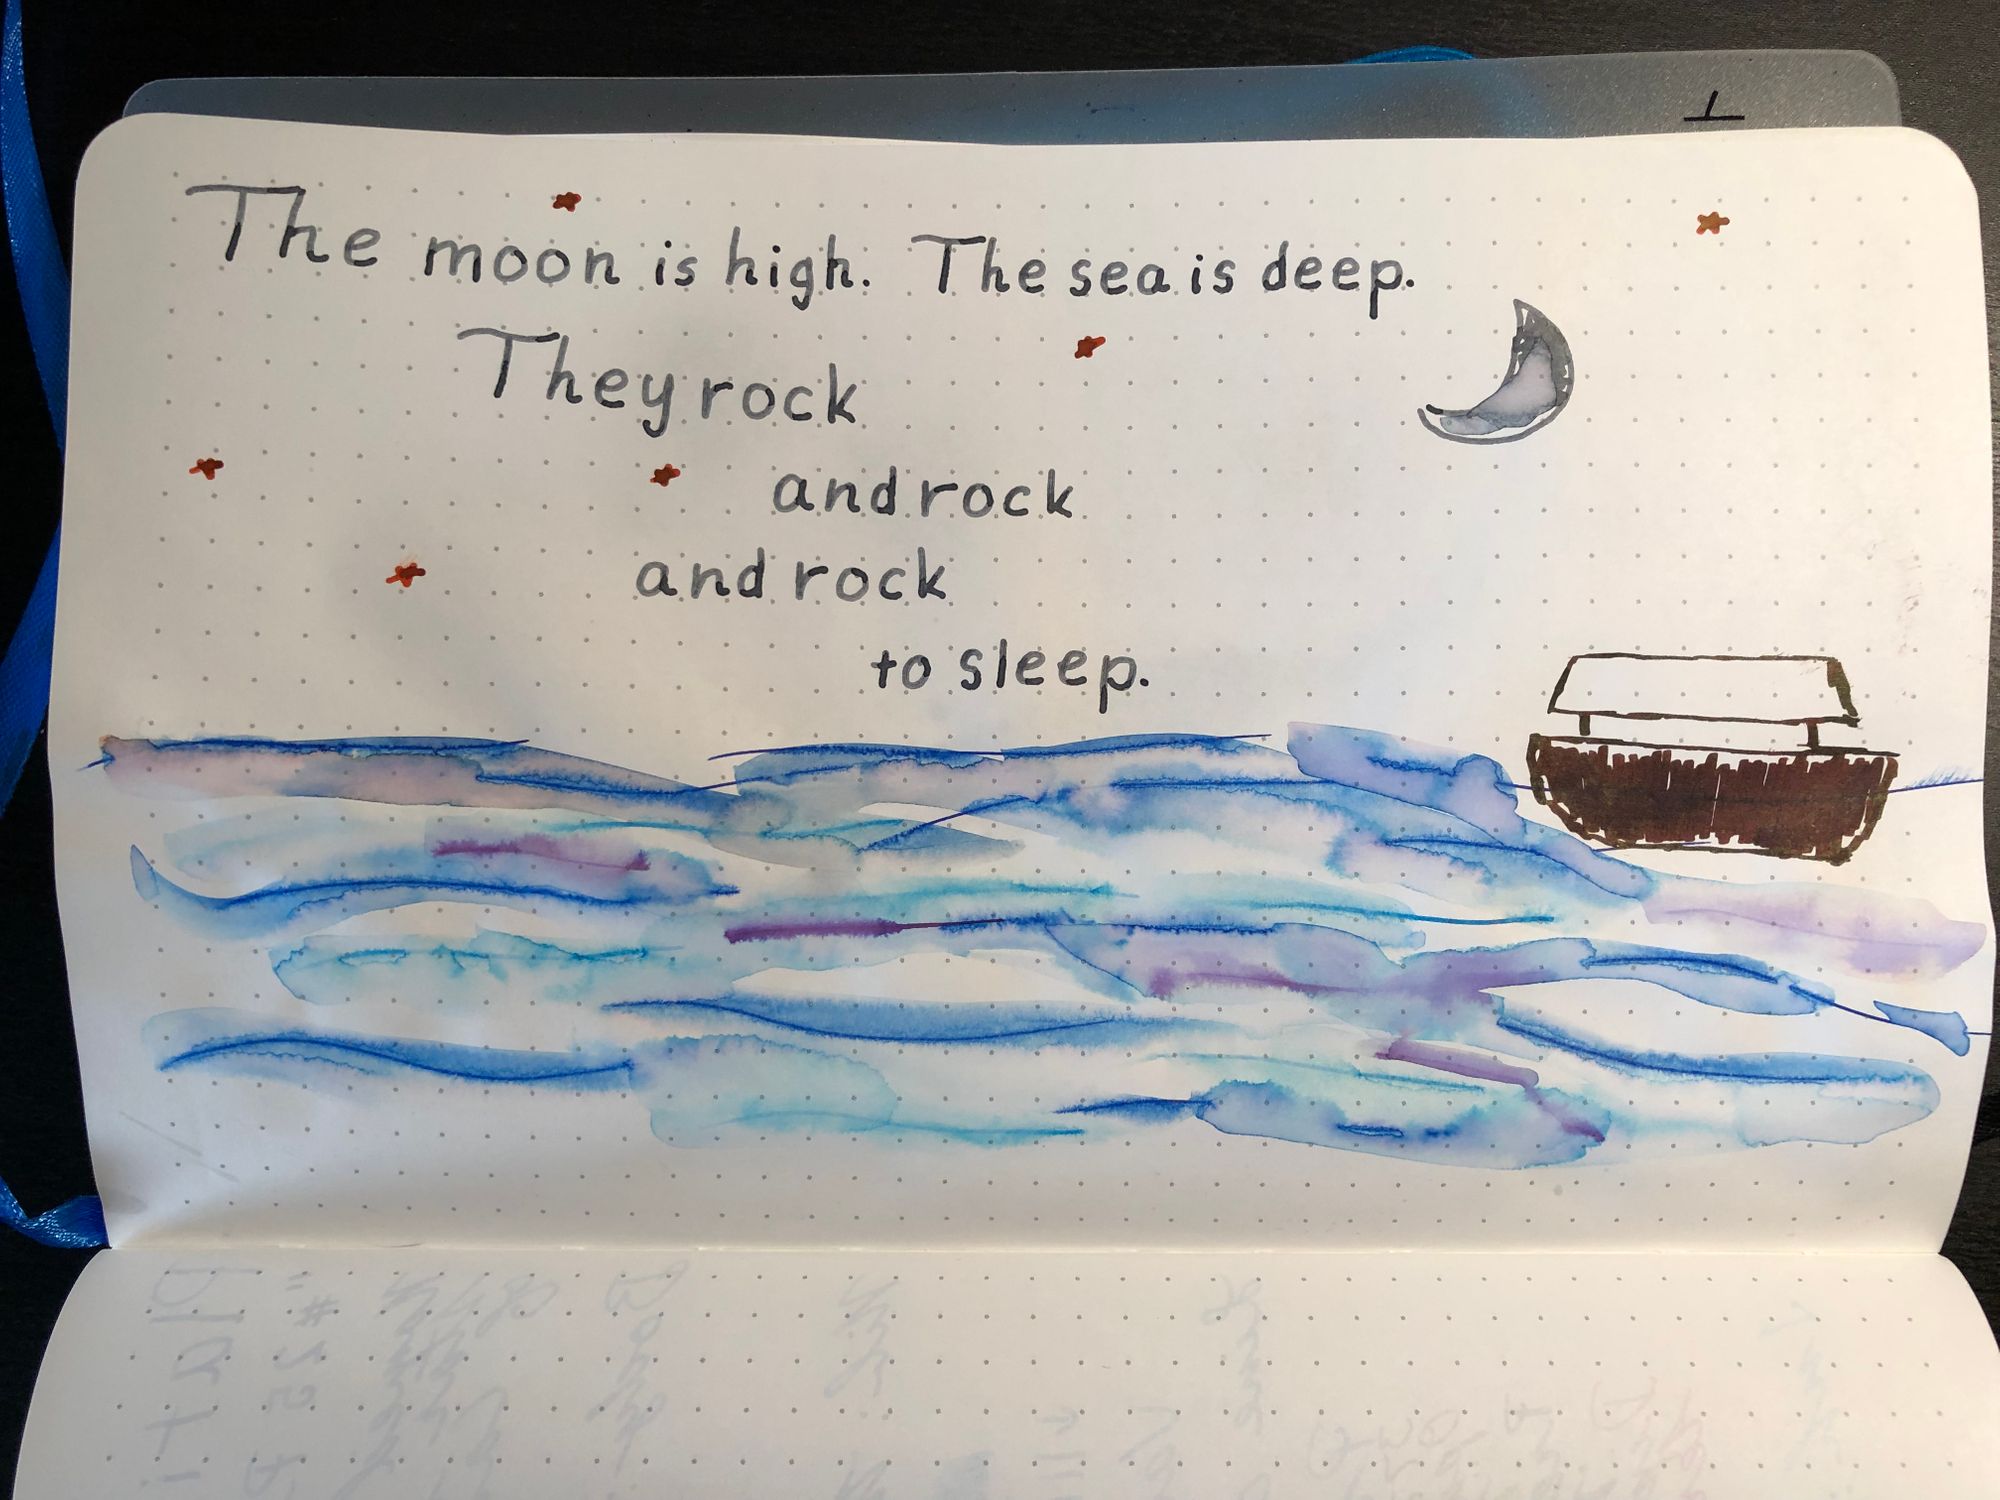 The moon is high. The sea is deep.
They rock
and rock
and rock
to sleep.